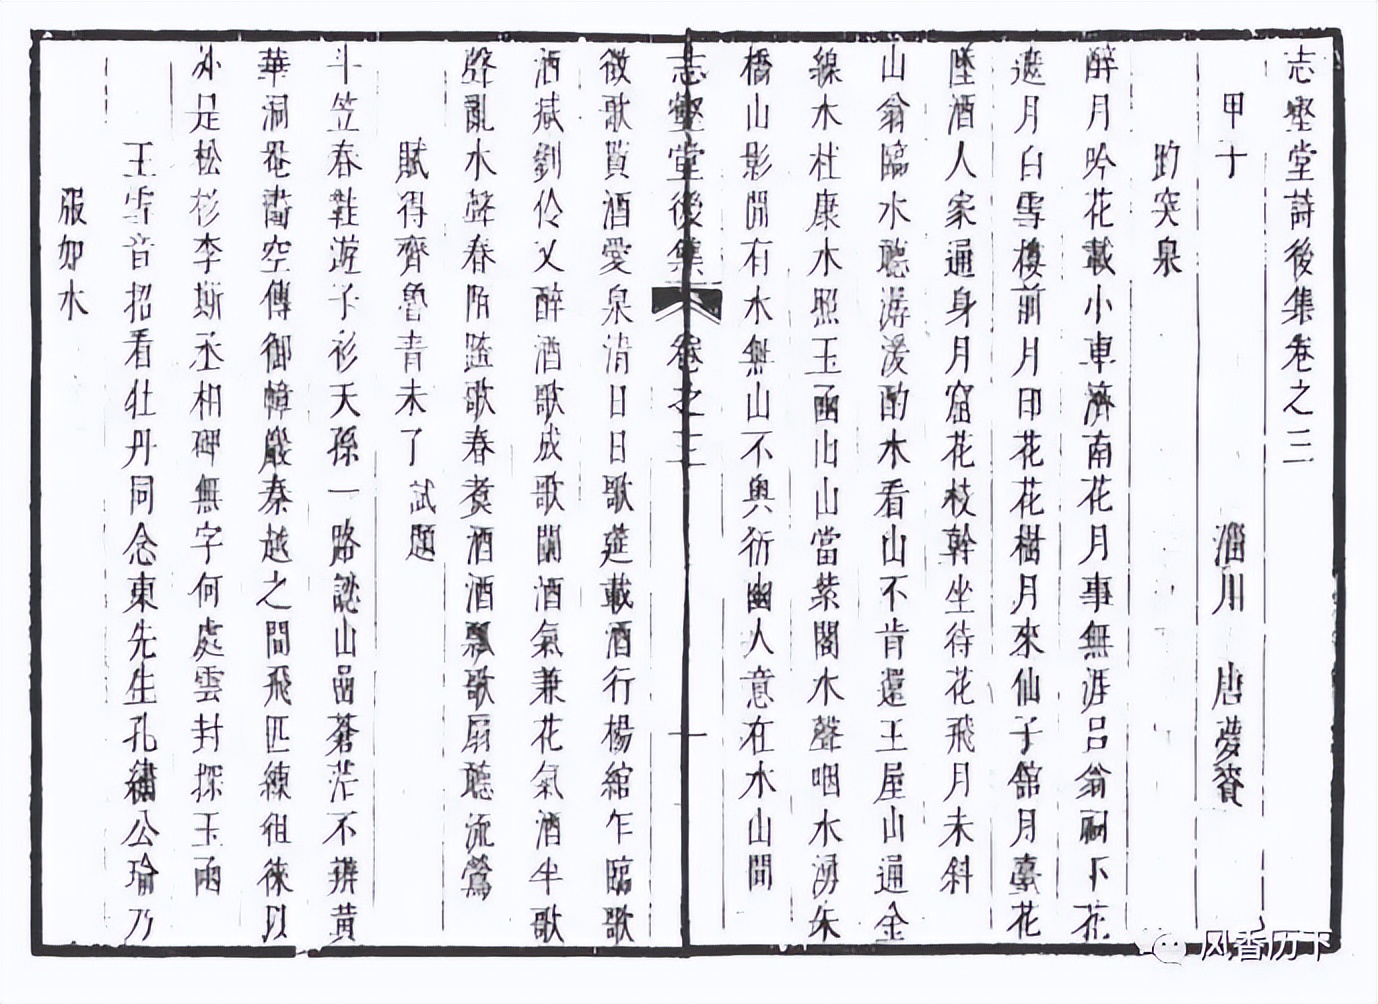 志壑堂詩後集卷之三
甲子　淄川　唐夢賚
趵突泉
醉月吟花載小車濟南花月事無涯呂翁祠下花
遮月白雪樓前月印花花樹月來仙子館月臺花
墜酒人家通身月窟花枝幹坐待花飛月未斜
山翁臨水聽潺湲酌水看山不肯還王屋山通金
線水杜康水照玉函山山當紫閣水聲咽水湧朱
橋山影閒有水無山不輿衍幽人意在水山間
志壑堂後集　卷之三　一
徵歌貰酒愛泉清日日歌筵載酒行楊綰乍臨歌
酒減劉伶又醉酒歌成歌闌酒氣兼花氣酒半歌
聲亂水聲春陌踏歌春煮酒酒飄歌扇聽流鶯
賦得齊魯青未了試題
斗笠春鞋遊子衫天孫一路認山嵒蒼茫不辨黃
華洞卷畫空傳御幛巖秦越之間飛匹練徂徠以
外是松杉李斯丞相碑無字何處雲封探玉函
王雪音招看牡丹同念東先生孔繡公瑜乃
服如水
风香历下